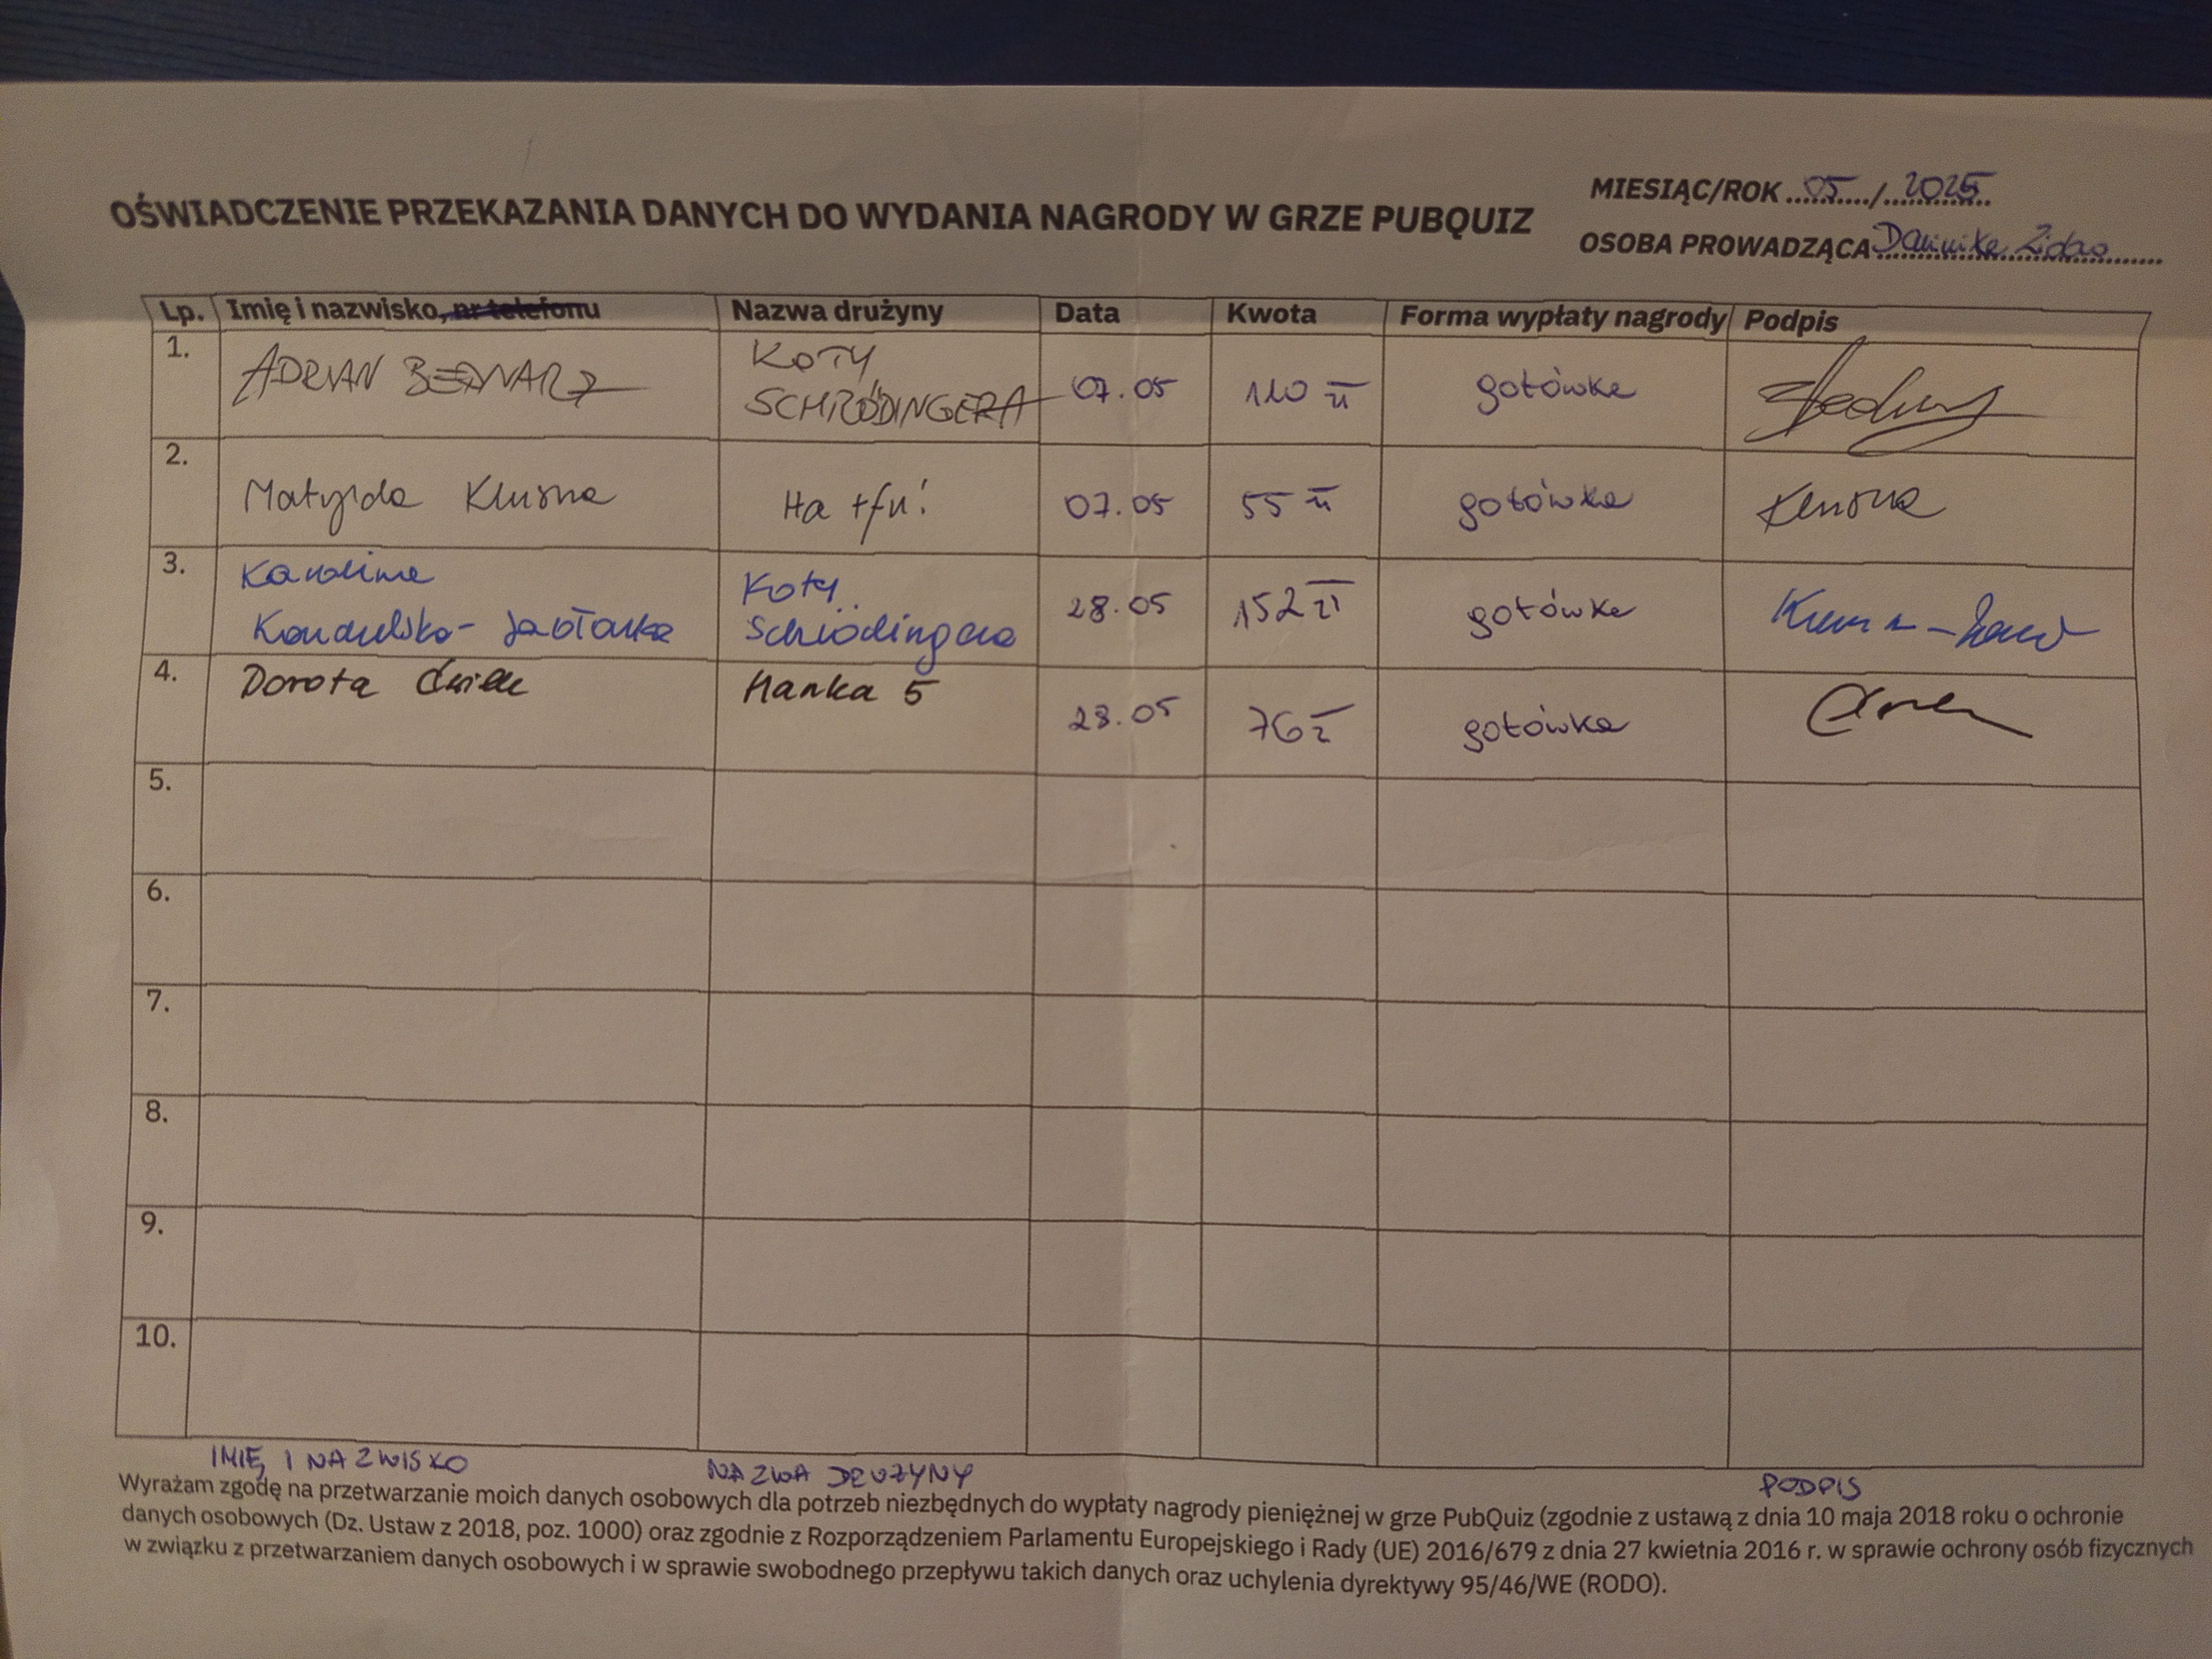 OŚWIADCZENIE PRZEKAZANIA DANYCH DO WYDANIA NAGRODY W GRZE PUBQUIZ
MIESIĄC/ROK 05/2025
OSOBA PROWADZĄCA
Lp. Imię i nazwisko, nr telefonu Nazwa drużyny Data Kwota Forma wypłaty nagrody Podpis
1. ADRIAN BEDNARZ KOTY SCHRÖDINGERA 07.05 110 zł gotówka
2. Matylda Klusna Ha tfu! 07.05 55 zł gotówka
3. Karolina Koty Schrödingera 28.05 152 zł gotówka
4. Dorota Ćwiek Hanka 5 28.05 76 zł gotówka
5.
6.
7.
8.
9.
10.
IMIĘ I NAZWISKO NAZWA DRUŻYNY PODPIS
Wyrażam zgodę na przetwarzanie moich danych osobowych dla potrzeb niezbędnych do wypłaty nagrody pieniężnej w grze PubQuiz (zgodnie z ustawą z dnia 10 maja 2018 roku o ochronie
danych osobowych (Dz. Ustaw z 2018, poz. 1000) oraz zgodnie z Rozporządzeniem Parlamentu Europejskiego i Rady (UE) 2016/679 z dnia 27 kwietnia 2016 r. w sprawie ochrony osób fizycznych
w związku z przetwarzaniem danych osobowych i w sprawie swobodnego przepływu takich danych oraz uchylenia dyrektywy 95/46/WE (RODO).